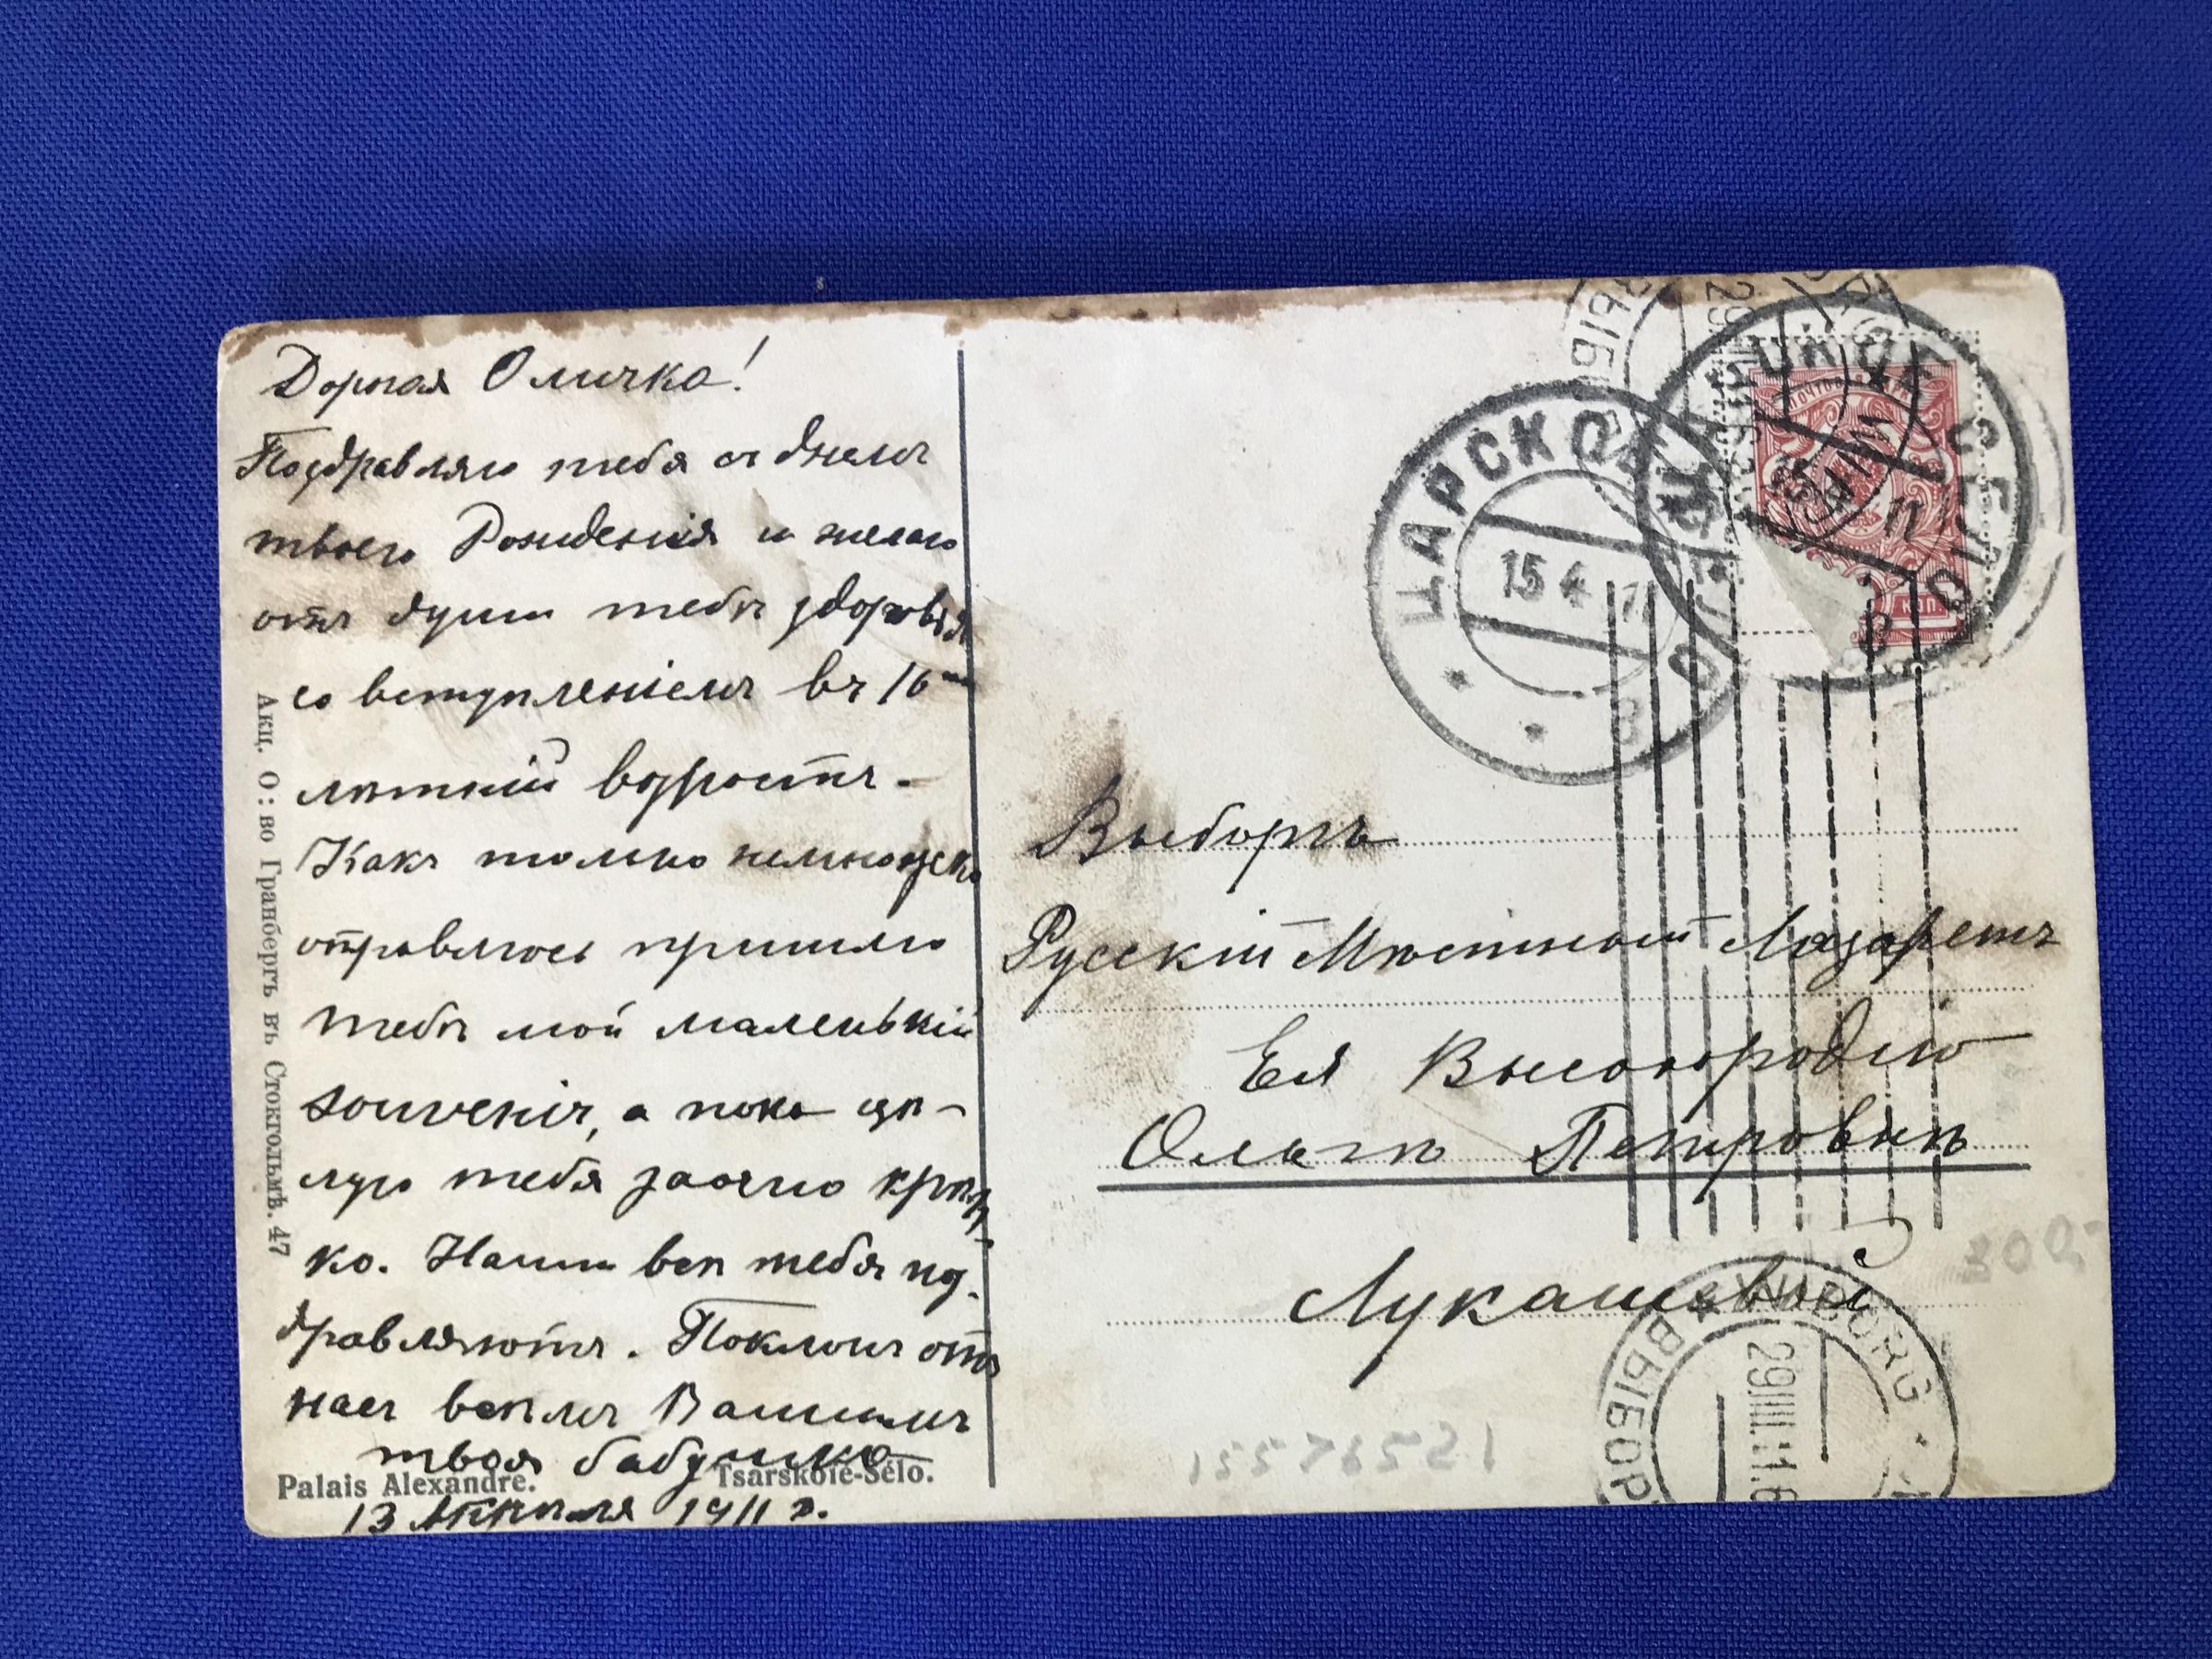 Дорогая Оличка!
Поздравляю тебя съ днемъ
твоего Рожденія и желаю
отъ души тебѣ здоровья
со вступленіемъ въ 16
лѣтній возрастъ.
Какъ только немножко
оправлюсь пришлю
тебѣ мой маленькій
souvenir, а пока цѣ-
лую тебя заочно крѣп-
ко. Наши всѣ тебя поз-
дравляютъ. Поклонъ отъ
насъ всѣмъ Вашимъ
твоя бабушка
Palais Alexandre. Tsarskoïe-Sélo.
13 Апрѣля 1911 г.
Акц. О: во Гранбергъ въ Стокгольмѣ. 47
ЦАРСКОЕ СЕЛО
15 4 11
В
ЦАРСКОЕ СЕЛО
11
В
КОП
Выборгъ
Русскій Мѣстный Лазаретъ
Ея Высокородію
Ольгѣ Петровнѣ
Лукашевой
300,-
15576521
WIBORG
ВЫБОР
29.III.11.6